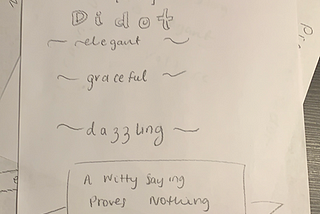 Didot
~ elegant ~
~ graceful ~
~ dazzling ~
A Witty Saying
Proves Nothing